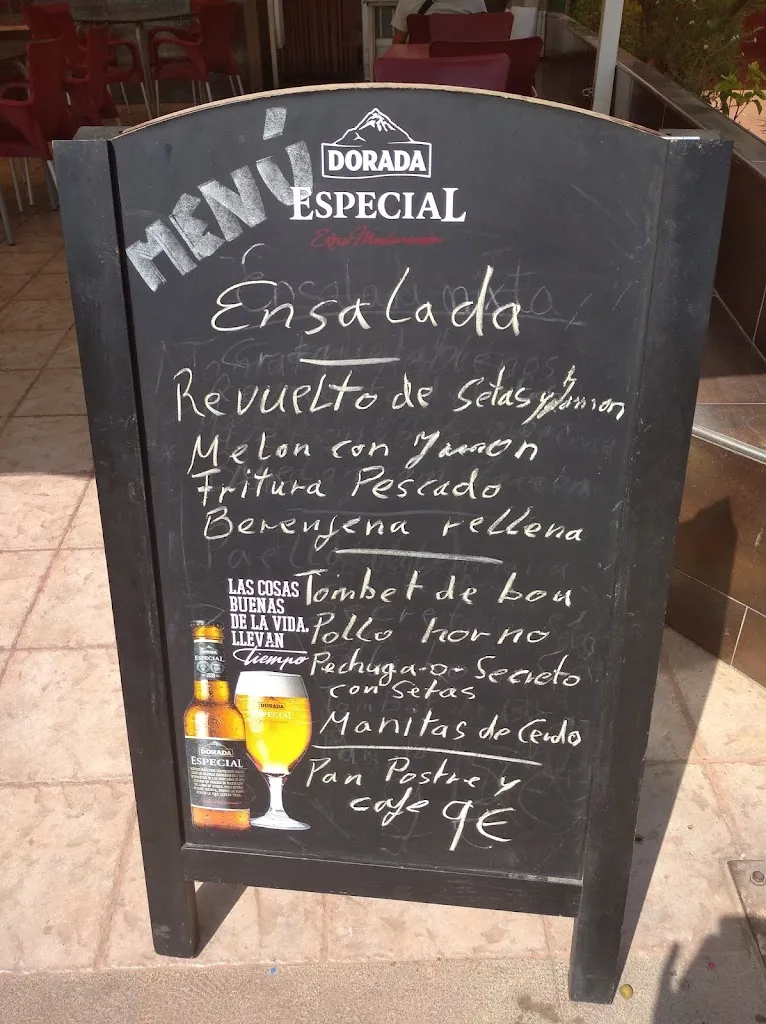 MENÚ
DORADA
ESPECIAL
Ensalada
Revuelto de Setas y Jamon
Melon con Jamon
Fritura Pescado
Berenjena rellena
LAS COSAS
BUENAS
DE LA VIDA,
LLEVAN
Tiempo
Tombet de bou
Pollo horno
Pechuga-o-Secreto
con Setas
Manitas de Cerdo
Pan Postre y
cafe 9€
DORADA
ESPECIAL
DORADA
ESPECIAL